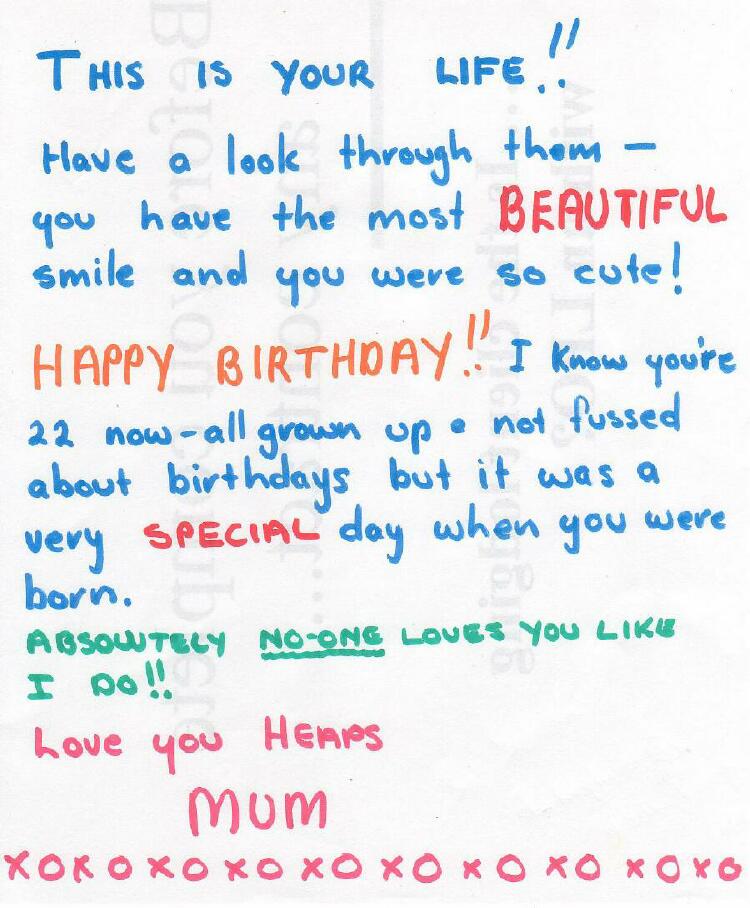 THIS IS YOUR LIFE!!
Have a look through them –
you have the most BEAUTIFUL
smile and you were so cute!
HAPPY BIRTHDAY!! I know you're
22 now – all grown up & not fussed
about birthdays but it was a
very SPECIAL day when you were
born.
ABSOLUTELY NO-ONE LOVES YOU LIKE
I DO!!
Love you HEAPS
MUM
XOXOXOXOXOXOXOXOXOXO